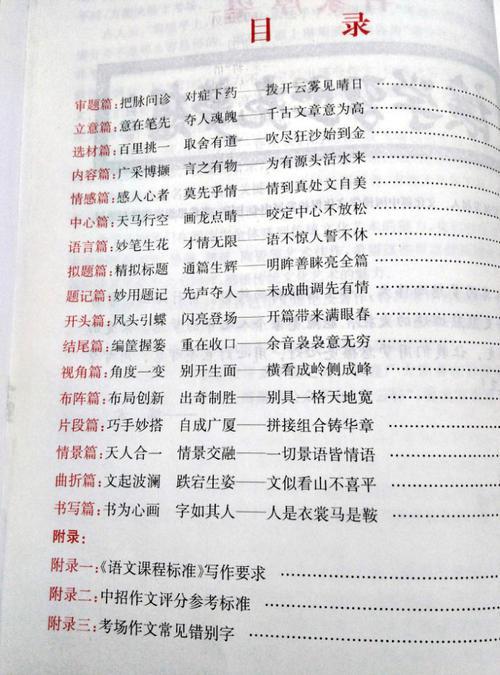 目 录
审题篇:把脉问诊 对症下药——拨开云雾见晴日
立意篇:意在笔先 夺人魂魄——千古文章意为高
选材篇:百里挑一 取舍有道——吹尽狂沙始到金
内容篇:广采博撷 言之有物——为有源头活水来
情感篇:感人心者 莫先乎情——情到真处文自美
中心篇:天马行空 画龙点晴——咬定中心不放松
语言篇:妙笔生花 才情无限——语不惊人誓不休
拟题篇:精拟标题 通篇生辉——明眸善睐亮全篇
题记篇:妙用题记 先声夺人——未成曲调先有情
开头篇:风头引蝶 闪亮登场——开篇带来满眼春
结尾篇:编筐握篓 重在收口——余音袅袅意无穷
视角篇:角度一变 别开生面——横看成岭侧成峰
布阵篇:布局创新 出奇制胜——别具一格天地宽
片段篇:巧手妙搭 自成广厦——拼接组合铸华章
情景篇:天人合一 情景交融——一切景语皆情语
曲折篇:文起波澜 跌宕生姿——文似看山不喜平
书写篇:书为心画 字如其人——人是衣裳马是鞍
附录:
附录一:《语文课程标准》写作要求
附录二:中招作文评分参考标准
附录三:考场作文常见错别字